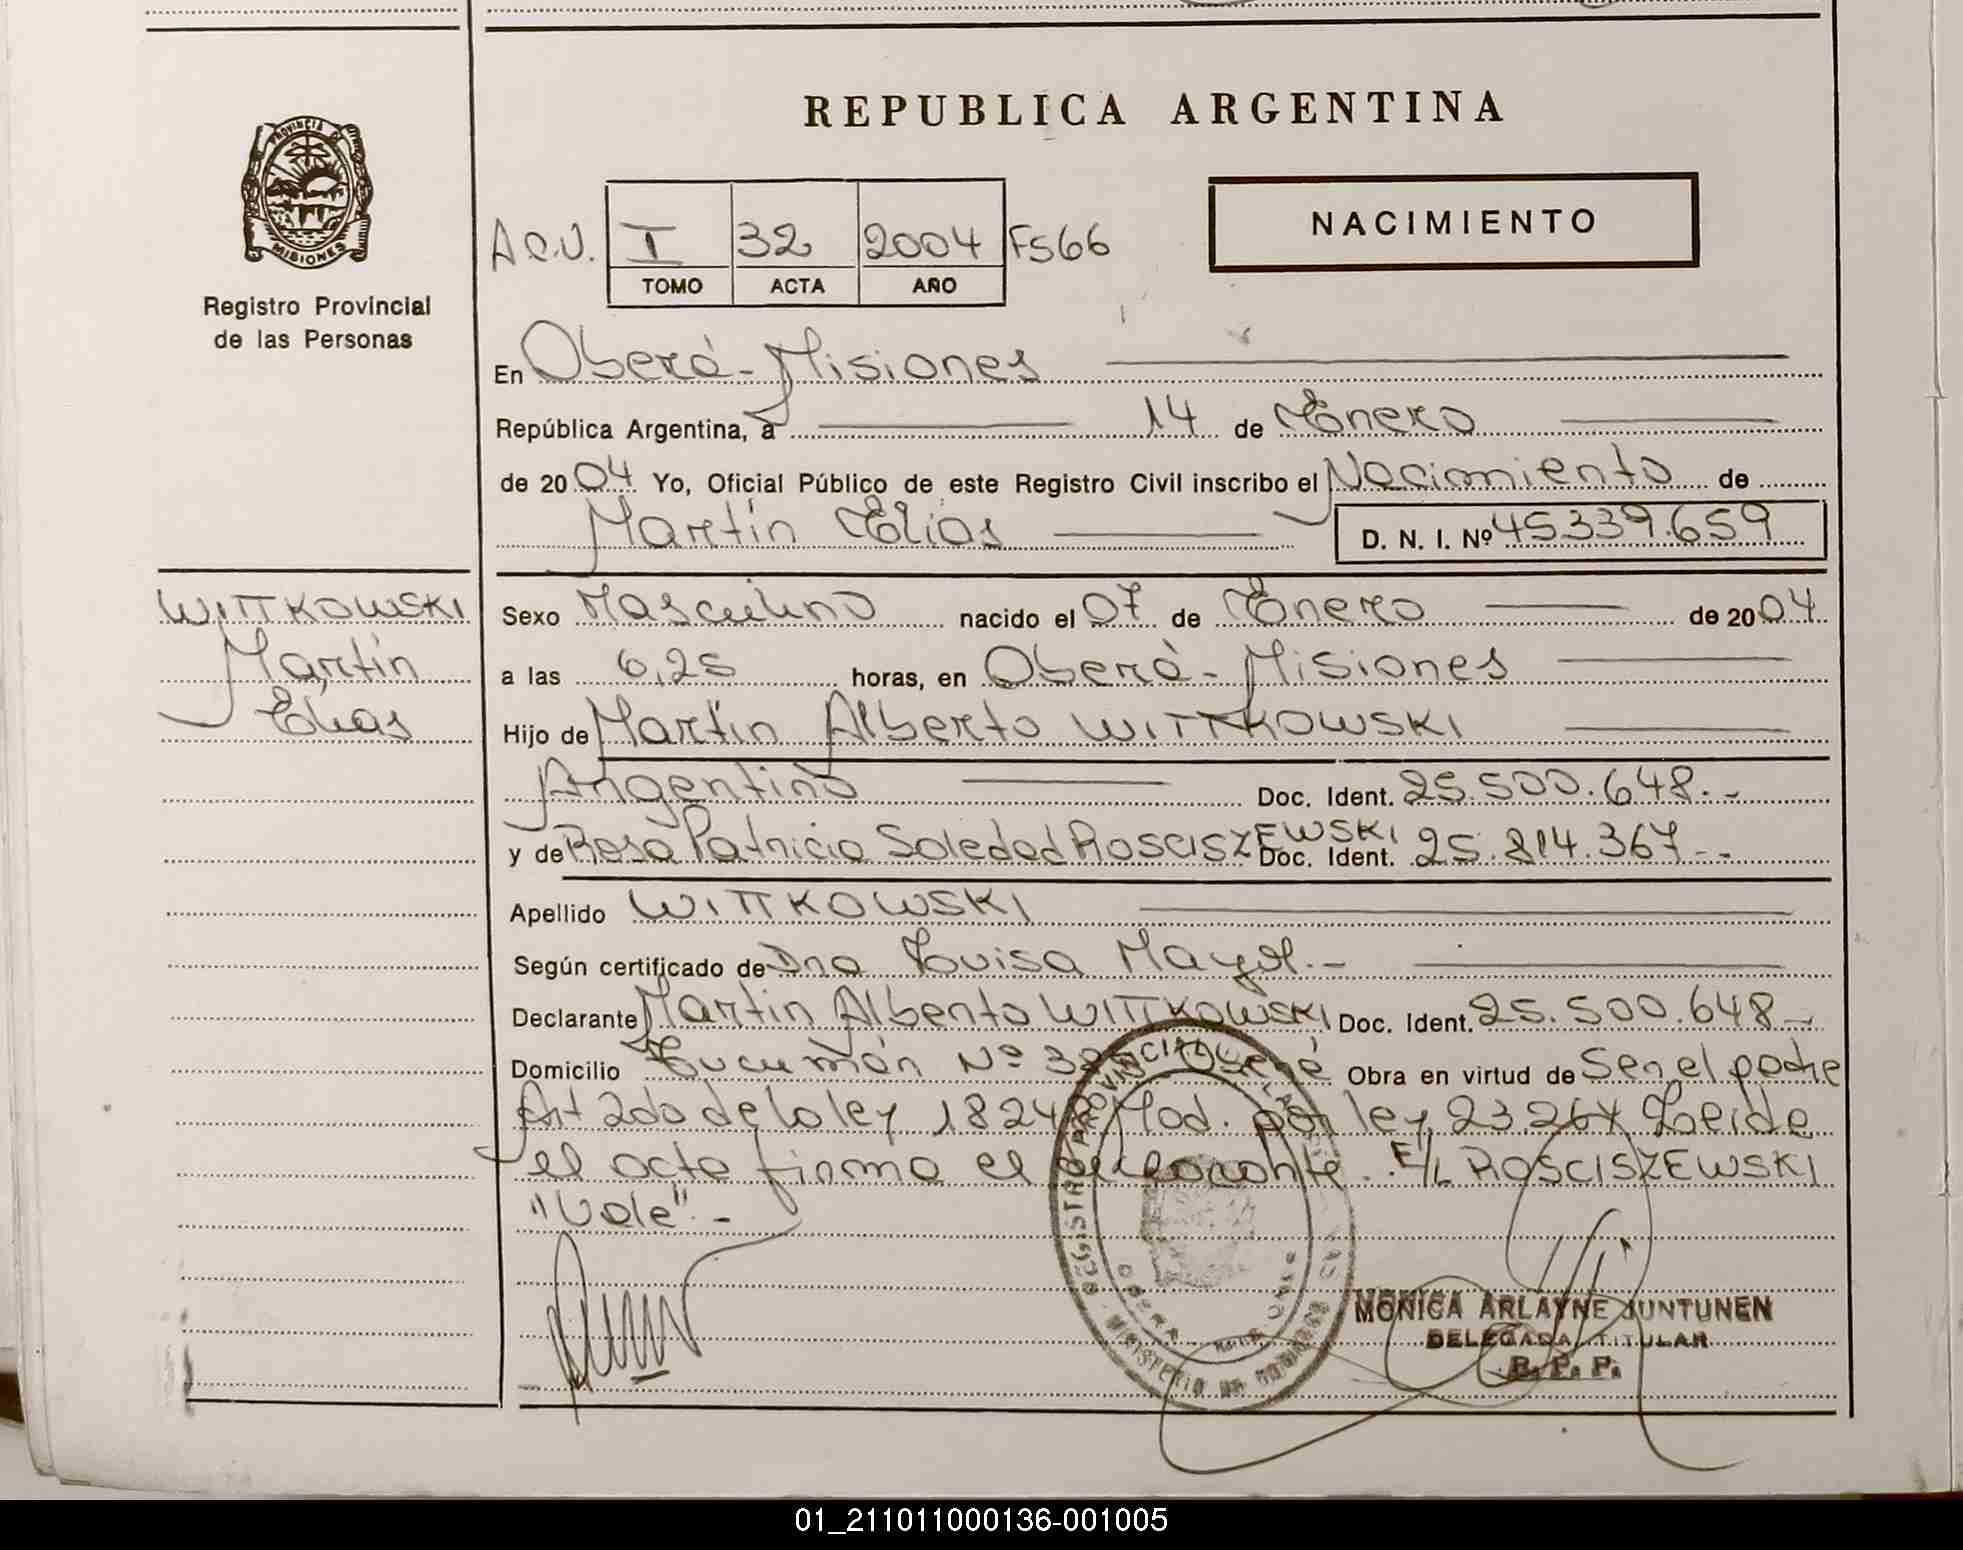 REPUBLICA ARGENTINA
PROVINCIA DE
MISIONES
Registro Provincial
de las Personas
NACIMIENTO
A.C.V. I 32 2004 Fs66
TOMO ACTA AÑO
En Oberá-Misiones
República Argentina, a 14 de Enero
de 2004 Yo, Oficial Público de este Registro Civil inscribo el Nacimiento de
Martín Elías D. N. I. Nº 45.339.659
WITTKOWSKI
Martín
Elías
Sexo Masculino nacido el 07 de Enero de 2004
a las 6,25 horas, en Oberá-Misiones
Hijo de Martín Alberto WITTKOWSKI
Argentino Doc. Ident. 25.500.648.-
y de Rosa Patricia Soledad ROSCISZEWSKI Doc. Ident. 25.814.367--
Apellido WITTKOWSKI
Según certificado de Dra Louisa Mayol.-
Declarante Martín Alberto WITTKOWSKI Doc. Ident. 25.500.648-
Domicilio Tucumán Nº Oberá Obra en virtud de Ser el padre
Art 2do de la ley 18248 Mod. por ley 23264 Leida
el acta firma el declarante. E/L ROSCISZEWSKI
"Vale".-
REGISTRO PROVINCIAL DE LAS
OBERA
MINISTERIO DE GOBIERNO
MONICA ARLAYNE JUNTUNEN
DELEGADA TITULAR
R. P. P.
01_211011000136-001005